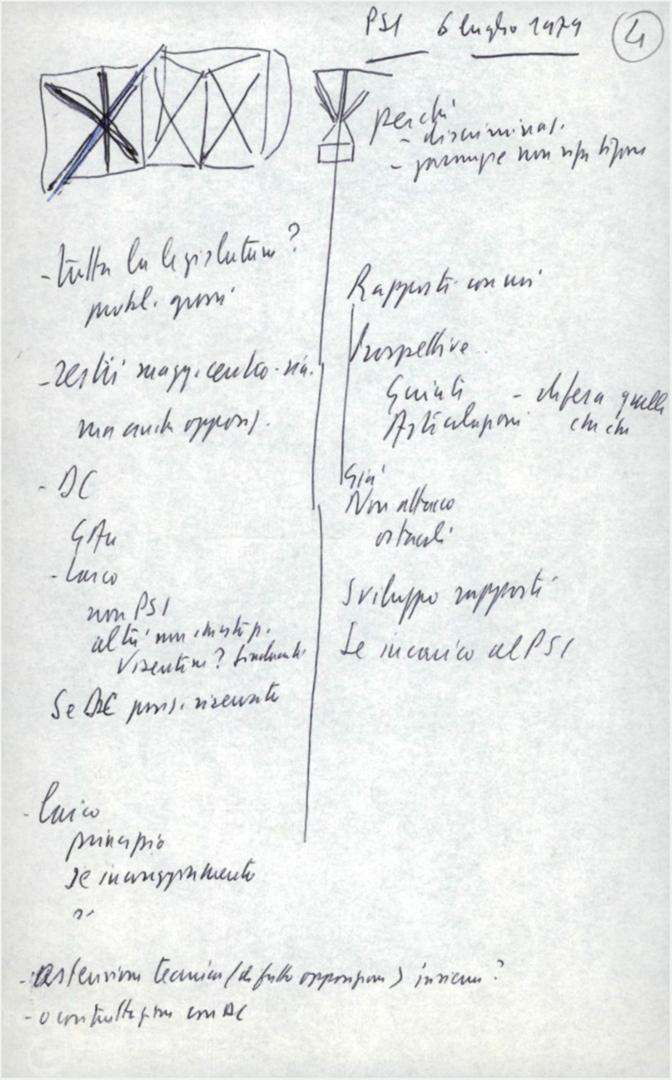 PSI 6 luglio 1979
4
perché
- discriminaz.
- pur non
- tutta la legislatura?
probl. grossi
- resti magg. centro-sin.
ma anche oppos.
- DC
- laico
non PSI
altri non
Visentini?
Se DC posiz. riservate
- laico
principio
se incoraggiamento
- astensione tecnica (di fatto opposizione) insieme?
- o contrattazione con DC
Rapporti con noi
Prospettive
Giunte - difesa quelle
Articolazioni che ci
Già
Non attacco
ostacoli
Sviluppo rapporti
Se incarico al PSI